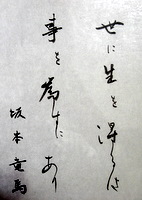 世に生を得るは
事を為すにあり
坂本竜馬